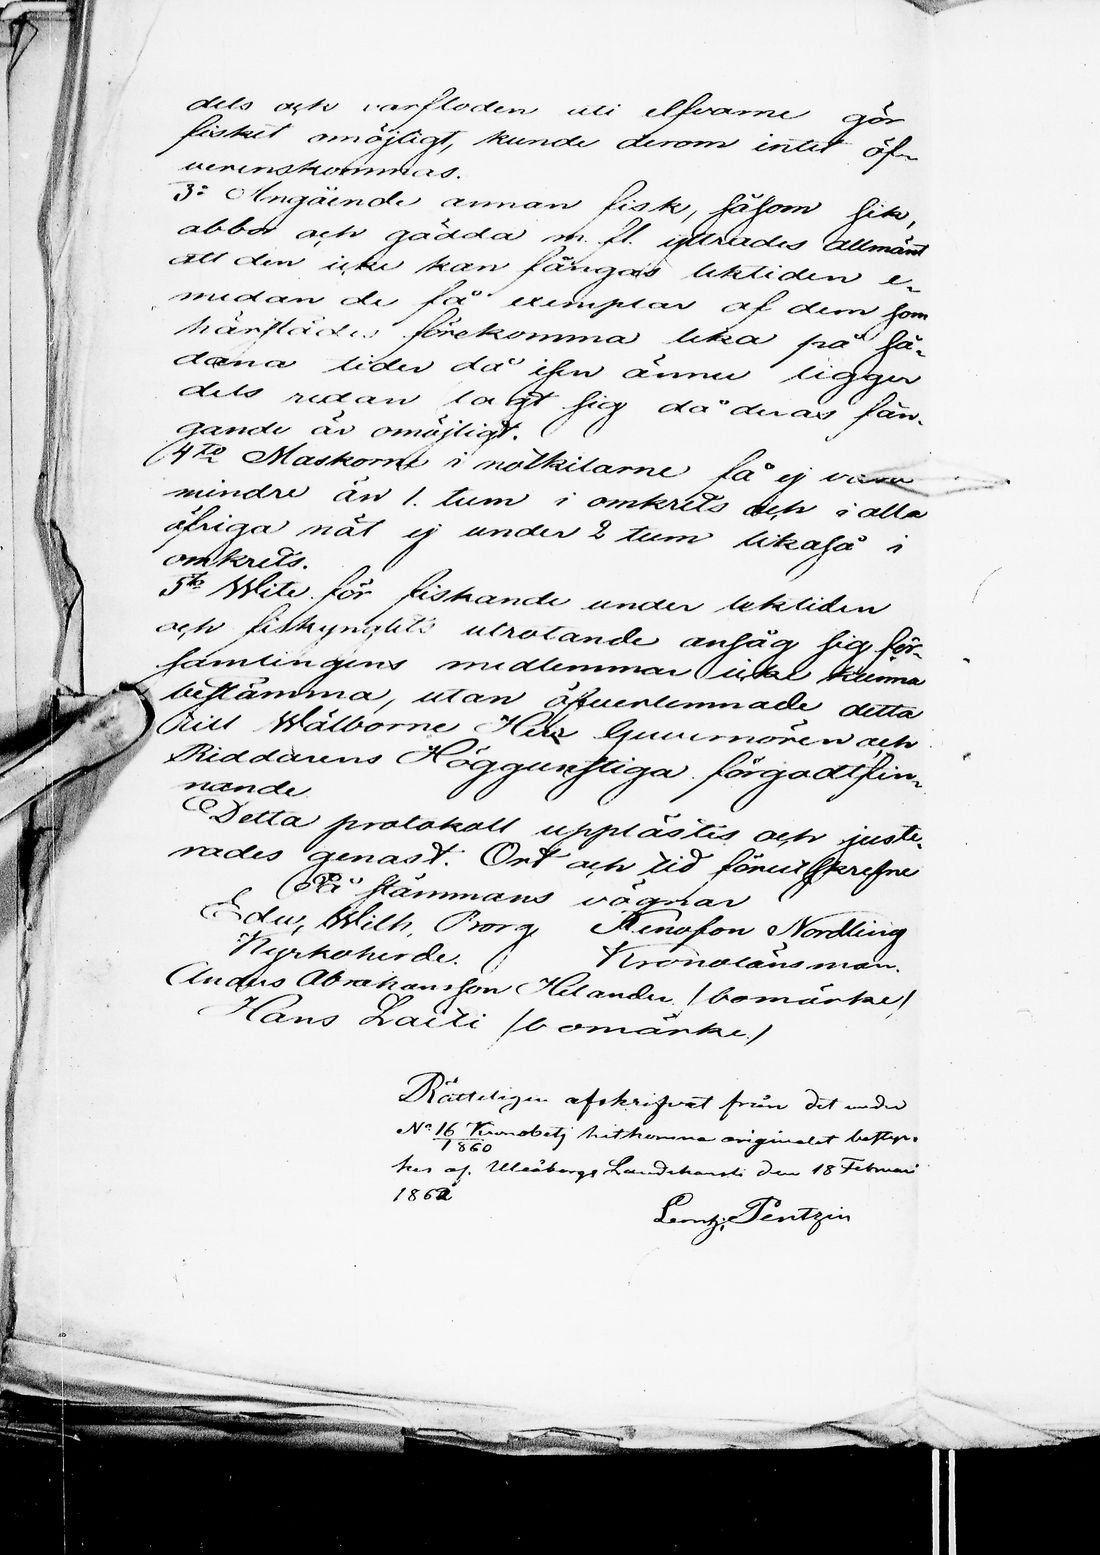 dels och varfloden uti elfvarne gör
fisket omöjligt, kunde derom intet öf-
verenskommas.
3:o Angående annan fisk, såsom sik,
abbor och gädda m. fl. yttrades allmänt
att den icke kan fångas lektiden e-
medan de få exemplar af dem som
härstädes förekomma leka på så-
dana tider då isen ännu ligger
dels redan lagt sig då deras fån-
gande är omöjligt.
4to Maskorne i notkilarne få ej vara
mindre än 1. tum i omkrets och i alla
öfriga nät ej under 2 tum likaså i
omkrets.
5to Wite för fiskande under lektiden
och fiskynglets utrotande ansåg sig för-
samlingens medlemmar icke kunna
bestämma, utan öfverlemnade detta
till Wälborne Herr Guvernören och
Riddarens Höggunstiga förgodtfin-
nande
Detta protokoll upplästes och juste-
rades genast. Ort och tid förutskrefne
På stämmans vägnar
Edw, Wilh, Borg Xenofon Nordling
Kyrkoherde. Kronolänsman.
Anders Abrahamsson Helander (bomärke)
Hans Laiti (bomärke)
Rätteligen afskrifvet från det under
No 16/1860 Kronobetj hitkomne originalet bestyr-
kes af. Uleåborgs Landskansli den 18 Februari
1862
Pentzin